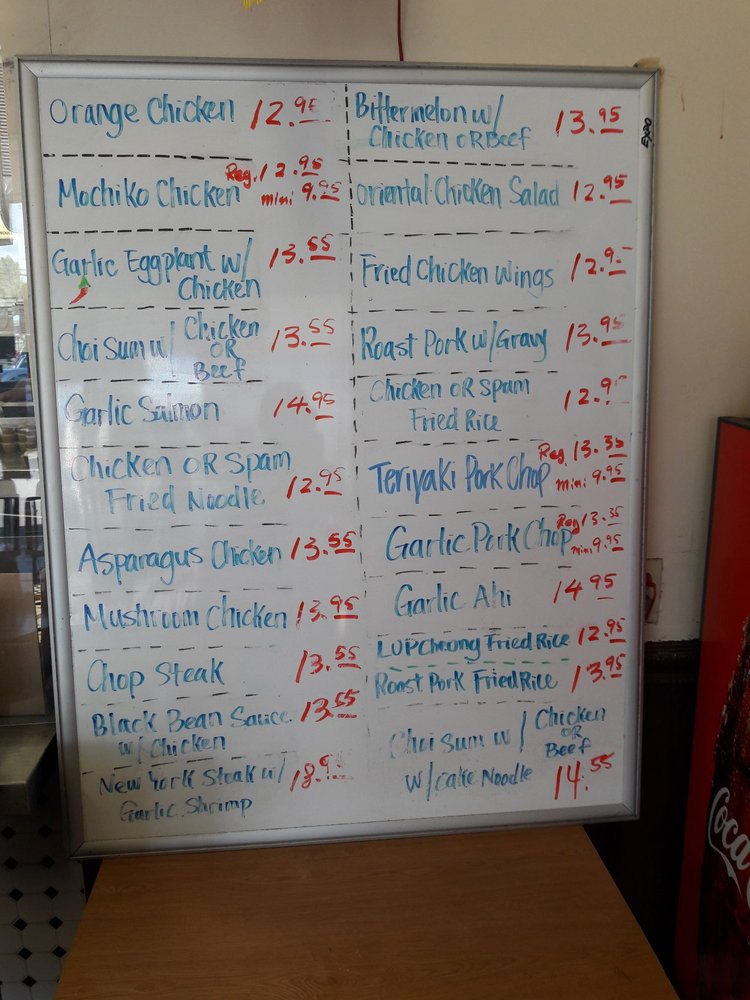 Orange Chicken 12.95
Mochiko Chicken Reg. 12.95
mini 9.95
Garlic Eggplant w/ 13.55
Chicken
Choi Sum w/ Chicken 13.55
OR
Beef
Garlic Salmon 14.95
Chicken OR Spam
Fried Noodle 12.95
Asparagus Chicken 13.55
Mushroom Chicken 13.95
Chop Steak 13.55
Black Bean Sauce 13.55
w/ Chicken
New York Steak w/
Garlic Shrimp
Bittermelon w/ 13.95
Chicken OR Beef
Oriental Chicken Salad 12.95
Fried Chicken Wings 12.9
Roast Pork w/ Gravy 13.95
Chicken OR Spam 12.9
Fried Rice
Teriyaki Pork Chop Reg. 13.35
mini 9.95
Garlic Pork Chop Reg 13.35
mini 9.95
Garlic Ahi 14.95
LUPCheong Fried Rice 12.95
Roast Pork Fried Rice 13.95
Choi Sum w/ Chicken
OR
Beef
w/cake Noodle 14.55
EXPO
Coca